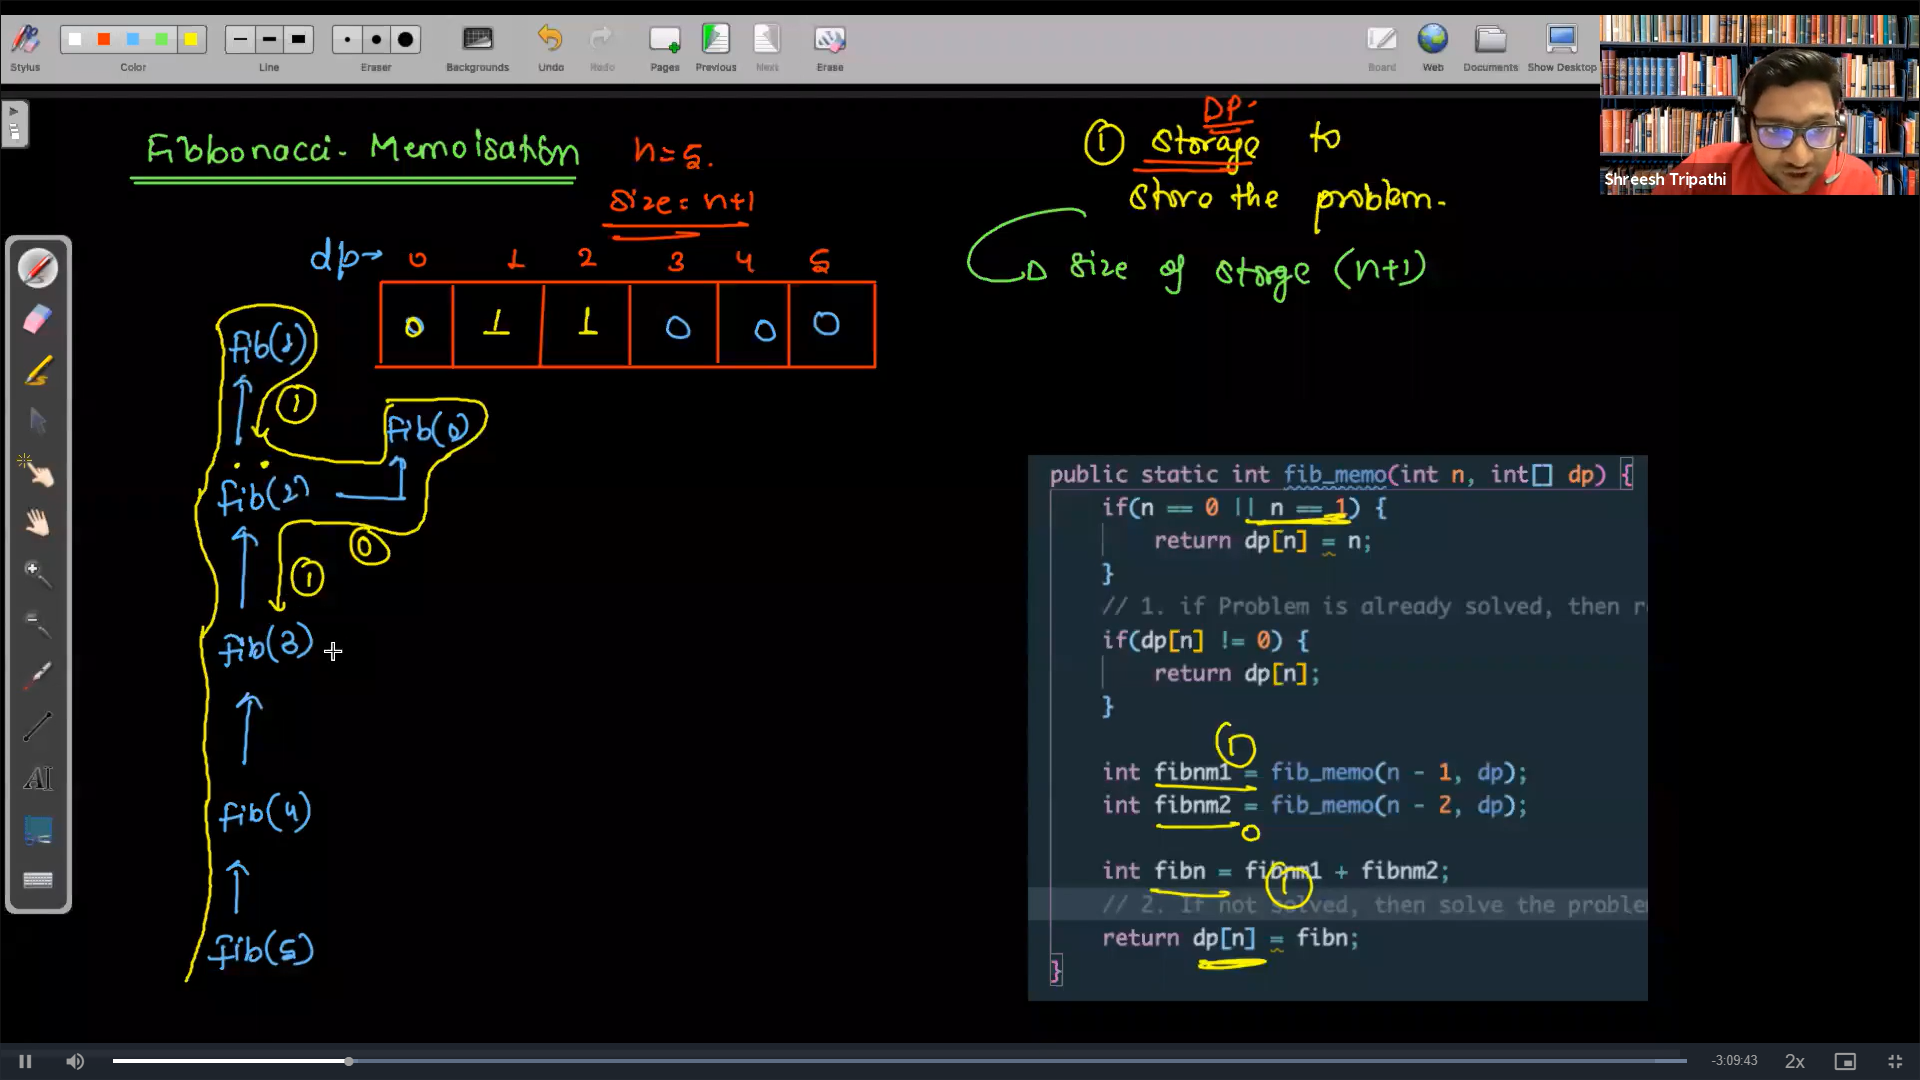 Stylus
Color
Line
Eraser
Backgrounds
Undo
Redo
Pages
Previous
Next
Erase
Board
Web
Documents
Show Desktop
Shreesh Tripathi
Fibbonacci - Memoisation
n=5.
size = n+1
DP.
① storage to
store the problem.
size of storge (n+1)
dp→ 0 1 2 3 4 5
0 1 1 0 0 0
fib(1)
1
fib(0)
fib(2)
0
1
fib(3)
fib(4)
fib(5)
public static int fib_memo(int n, int[] dp) {
if(n == 0 || n == 1) {
return dp[n] = n;
}
// 1. if Problem is already solved, then r
if(dp[n] != 0) {
return dp[n];
}
1
int fibnm1 = fib_memo(n - 1, dp);
int fibnm2 = fib_memo(n - 2, dp);
0
int fibn = fibnm1 + fibnm2;
1
// 2. If not solved, then solve the proble
return dp[n] = fibn;
}
-3:09:43
2x